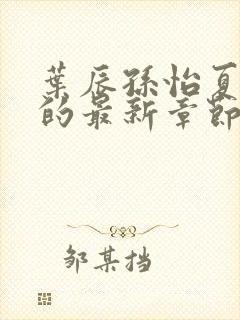 葉辰孫怡夏
的最新章節
邹某挡